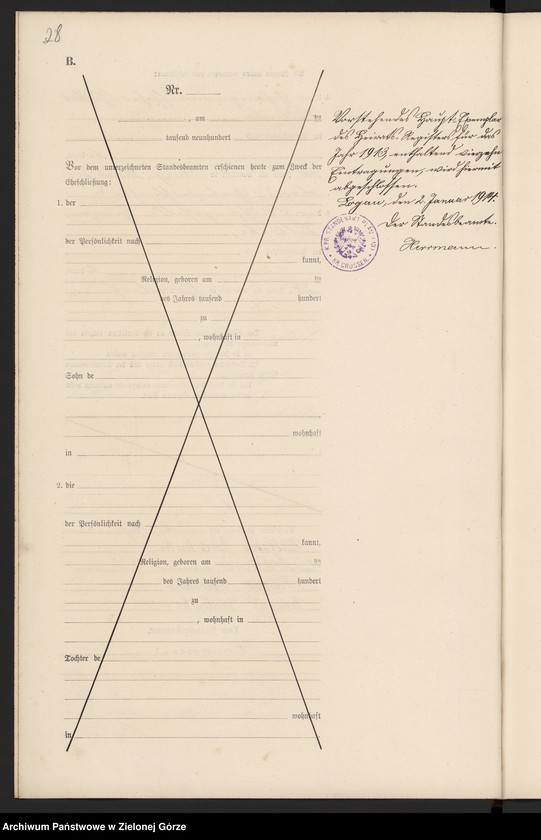 28
B.
Nr.
, am ten
tausend neunhundert
Vor dem unterzeichneten Standesbeamten erschienen heute zum Zweck der
Eheschließung:
1. der
der Persönlichkeit nach
kannt,
Religion, geboren am ten
des Jahres tausend hundert
zu
, wohnhaft in
Sohn de
wohnhaft
in
2. die
der Persönlichkeit nach
kannt,
Religion, geboren am ten
des Jahres tausend hundert
zu
, wohnhaft in
Tochter de
wohnhaft
in
Vorstehendes Haupt-Exemplar
des Heirats-Registers für das
Jahr 1913, enthaltend vierzehn
Eintragungen, wird hiermit
abgeschlossen.
Logau, den 2. Januar 1914.
Der Standesbeamte.
Herrmann.
KPR. STANDESAMT LOGAU
KR. CROSSEN
Archiwum Państwowe w Zielonej Górze